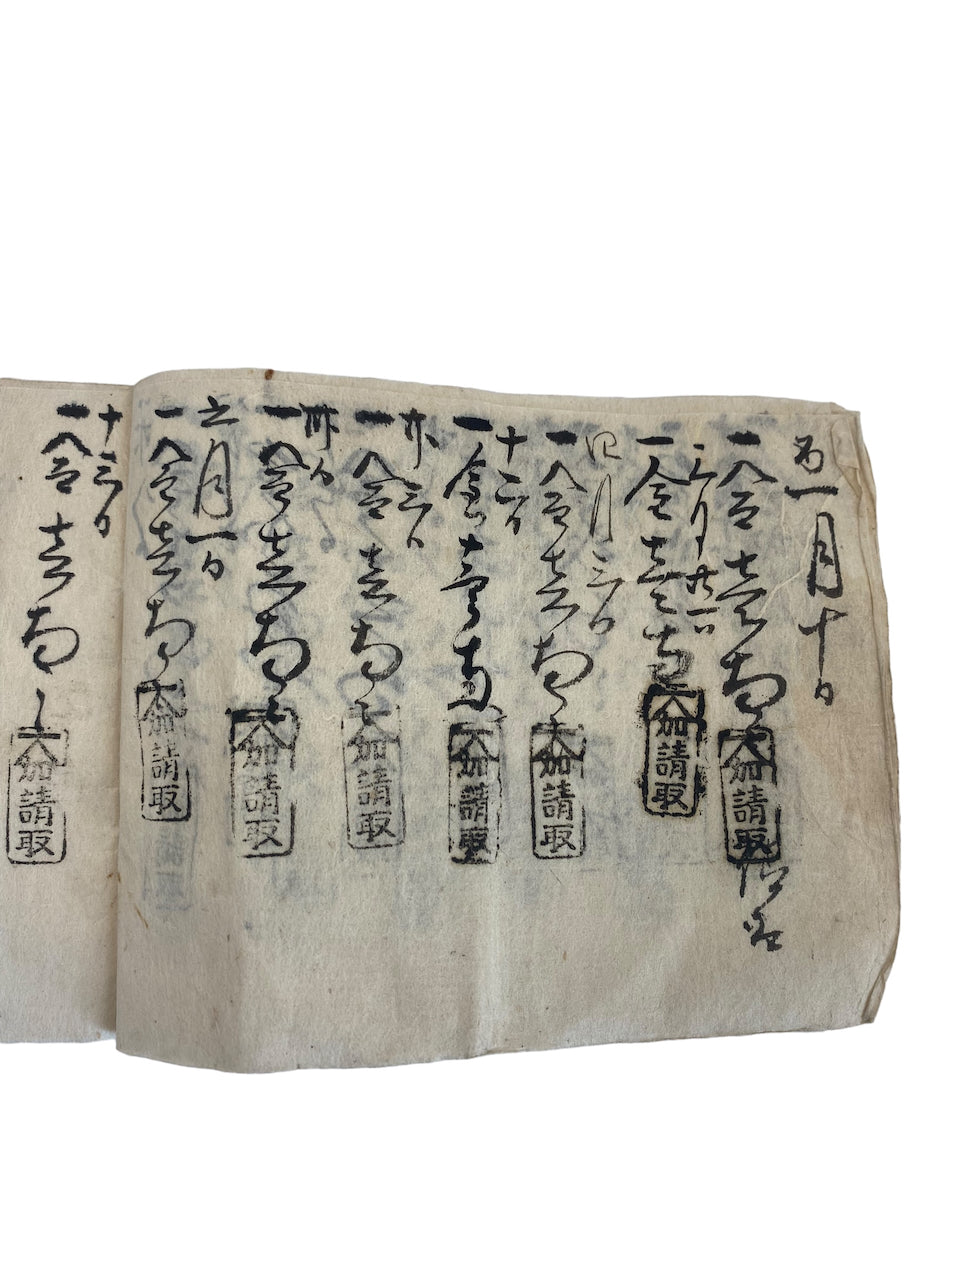 一月十日
一金壱両也
大加請取
三月廿一日
一金壱両
大加請取
四月三日
一金壱両也
大加請取
十二日
一金壱両
大加請取
廿三日
一金壱両也
大加請取
卅日
一金壱両也
大加請取
七月一日
一金壱両
大加請取
十三日
一金壱両也
大加請取